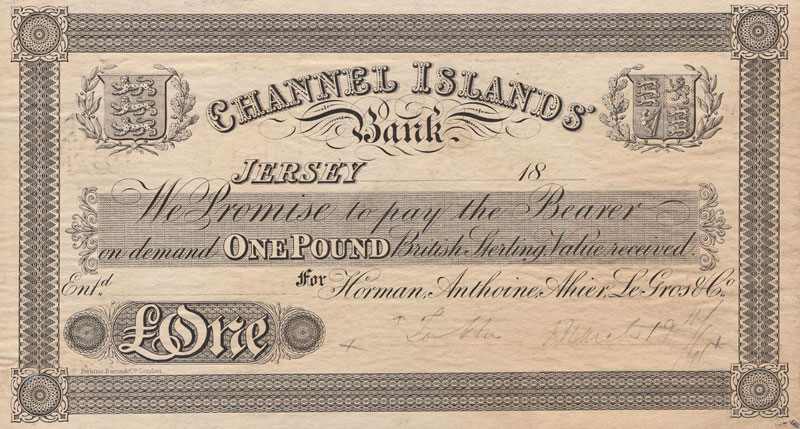 CHANNEL ISLANDS'
Bank.
JERSEY 18
We Promise to pay the Bearer
on demand ONE POUND British Sterling Value received.
Entd.
For Horman, Anthoine, Ahier, Le Gros & Co.
£One
Perkins, Bacon & Co. London.